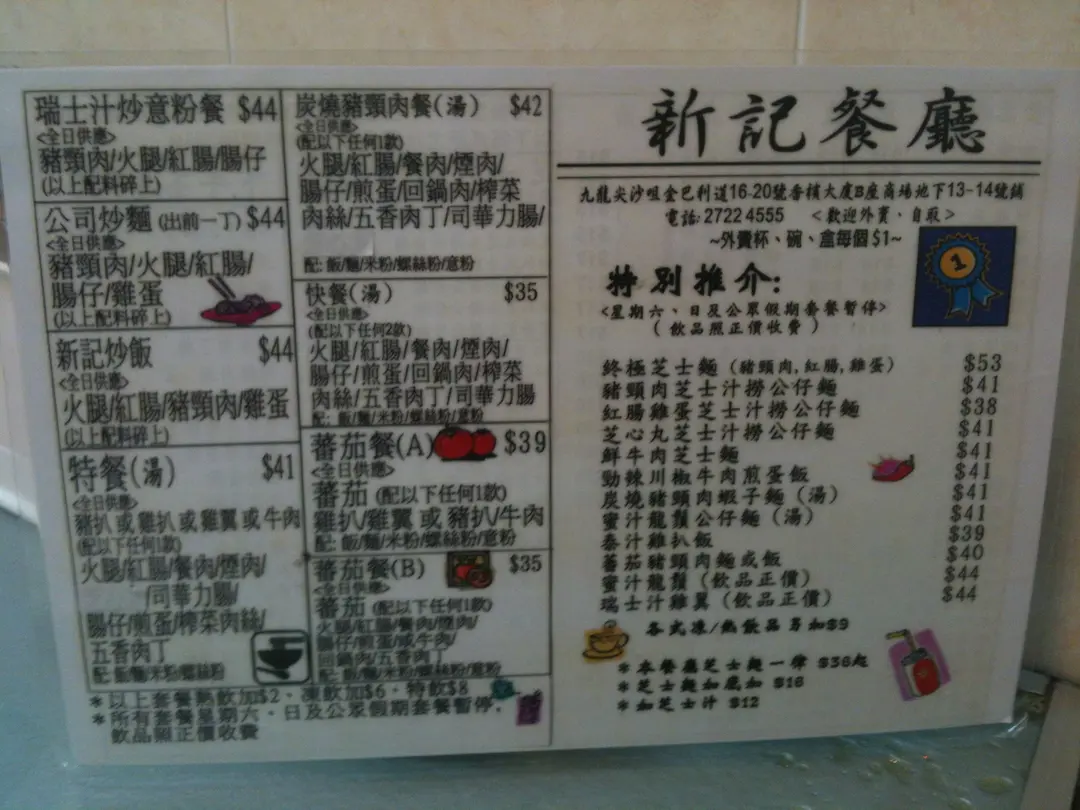 瑞士汁炒意粉餐 $44
<全日供應>
豬頸肉/火腿/紅腸/腸仔
(以上配料碎上)
公司炒麵 (出前一丁) $44
<全日供應>
豬頸肉/火腿/紅腸/
腸仔/雞蛋
(以上配料碎上)
新記炒飯 $44
<全日供應>
火腿/紅腸/豬頸肉/雞蛋
(以上配料碎上)
特餐(湯) $41
<全日供應>
豬扒 或 雞扒 或 雞翼 或 牛肉
(配以下任何1款)
火腿/紅腸/餐肉/煙肉/
司華力腸/
腸仔/煎蛋/榨菜肉絲/
五香肉丁
配: 飯/麵/米粉/螺絲粉
炭燒豬頸肉餐(湯) $42
<全日供應>
(配以下任何1款)
火腿/紅腸/餐肉/煙肉/
腸仔/煎蛋/回鍋肉/榨菜
肉絲/五香肉丁/司華力腸/
配: 飯/麵/米粉/螺絲粉/意粉
快餐(湯) $35
<全日供應>
(配以下任何2款)
火腿/紅腸/餐肉/煙肉/
腸仔/煎蛋/回鍋肉/榨菜
肉絲/五香肉丁/司華力腸
配: 飯/麵/米粉/螺絲粉/意粉
蕃茄餐(A) $39
<全日供應>
蕃茄 (配以下任何1款)
雞扒/雞翼 或 豬扒/牛肉
配: 飯/麵/米粉/螺絲粉/意粉
蕃茄餐(B) $35
<全日供應>
蕃茄 (配以下任何1款)
火腿/紅腸/餐肉/煙肉/
腸仔/煎蛋/咸牛肉/
回鍋肉/五香肉丁
配: 飯/麵/米粉/螺絲粉/意粉
* 以上套餐熱飲加$2、凍飲加$6、特飲$8
* 所有套餐星期六、日及公眾假期套餐暫停,
飲品照正價收費
新記餐廳
九龍尖沙咀金巴利道16-20號香檳大廈B座商場地下13-14號鋪
電話: 2722 4555 <歡迎外賣、自取>
~外賣杯、碗、盒每個 $1~
1
特別推介:
<星期六、日及公眾假期套餐暫停>
(飲品照正價收費)
終極芝士麵 (豬頸肉,紅腸,雞蛋) $53
豬頸肉芝士汁撈公仔麵 $41
紅腸雞蛋芝士汁撈公仔麵 $38
芝心丸芝士汁撈公仔麵 $41
鮮牛肉芝士麵 $41
勁辣川椒牛肉煎蛋飯 $41
炭燒豬頸肉蝦子麵 (湯) $41
蜜汁龍鬚公仔麵 (湯) $41
泰汁雞扒飯 $39
蕃茄豬頸肉麵或飯 $40
蜜汁龍鬚 (飲品正價) $44
瑞士汁雞翼 (飲品正價) $44
各式凍/熱飲品另加$9
* 本餐廳芝士麵一律 $38起
* 芝士麵加底加 $16
* 加芝士汁 $12